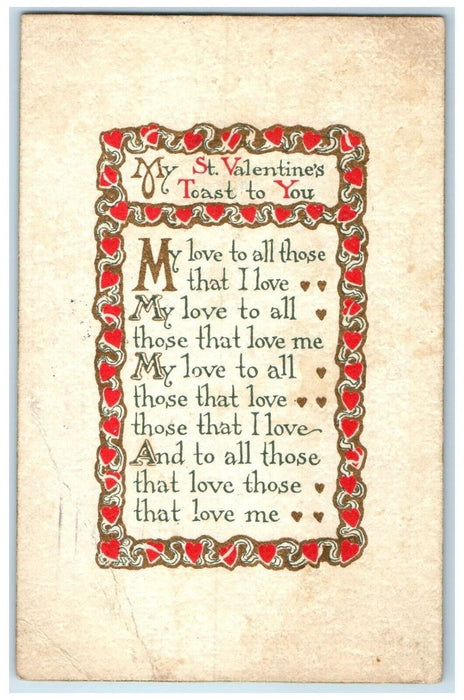 My St. Valentine's
Toast to You
My love to all those
that I love
My love to all
those that love me
My love to all
those that love
those that I love
And to all those
that love those
that love me